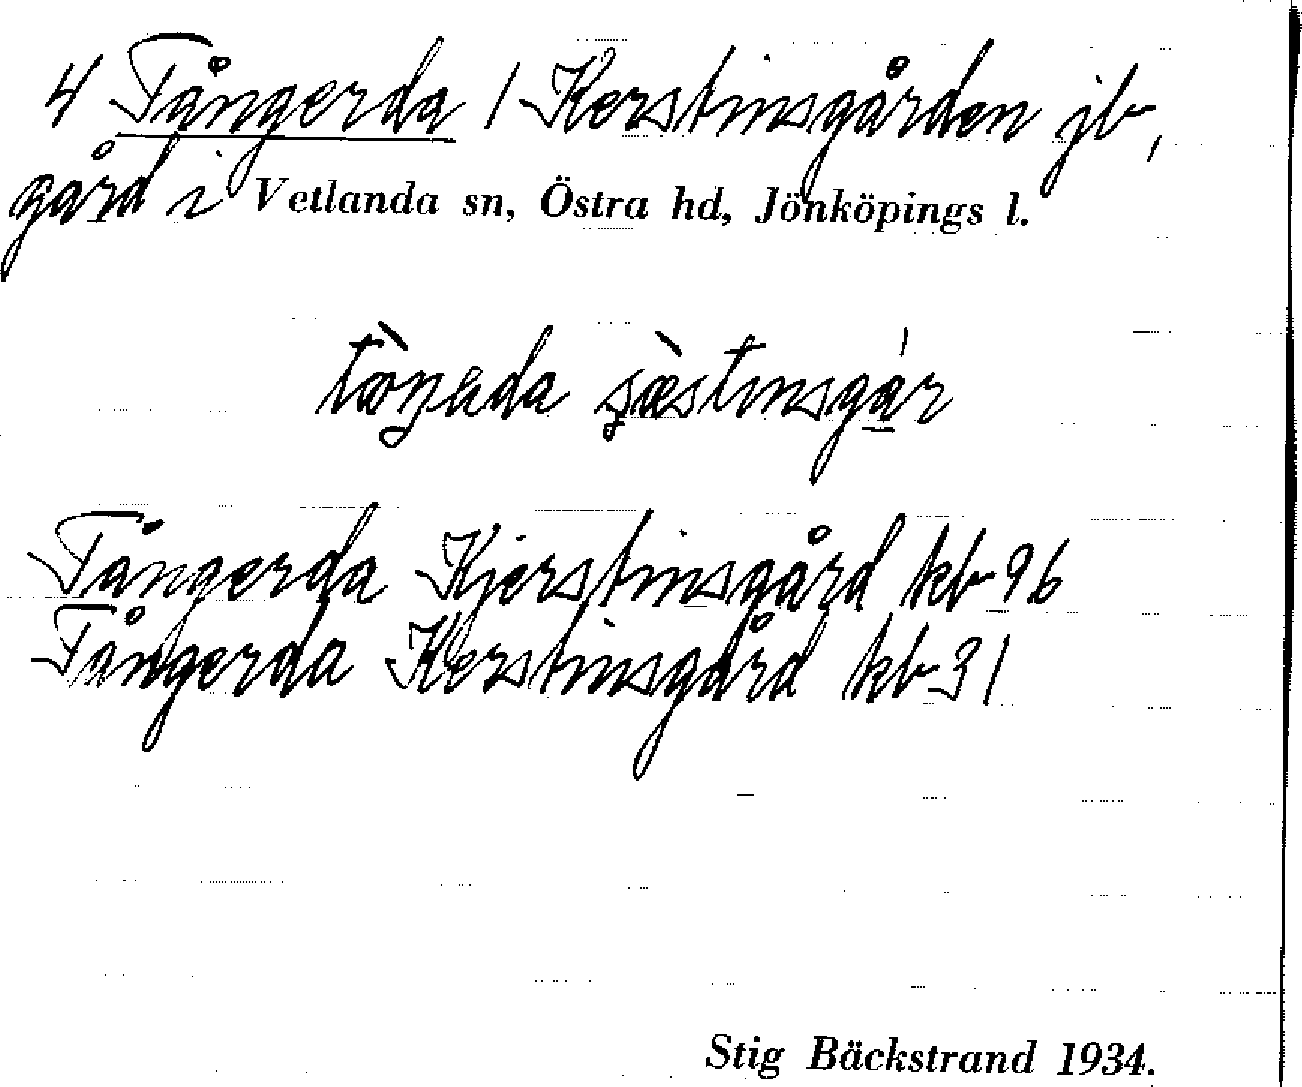 4 Tångerda 1 Kerstinsgården jb,
gård i Vetlanda sn, Östra hd, Jönköpings l.
Tångerda Kjerstinsgård kb 96
Tångerda Kerstinsgård kb 31
Stig Bäckstrand 1934.